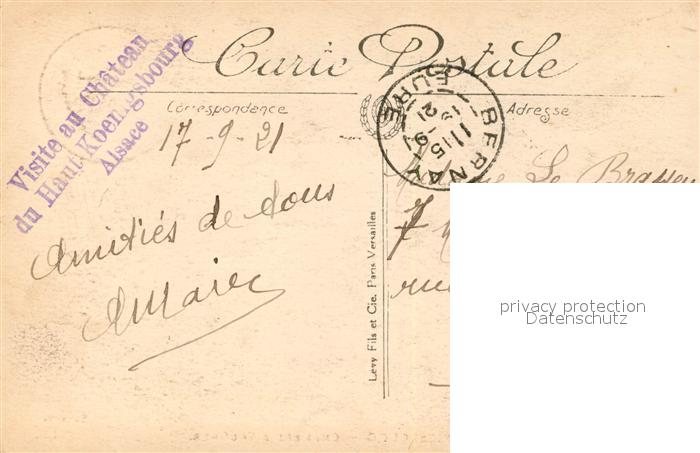 Carte Postale
Visite au Château
du Haut-Koenigsbourg
Alsace
Correspondance
Adresse
17-9-21
BERNAY
EURE
Le Brasseur
7
rue
Amitiés de tous
Lévy Fils et Cie. Paris Versailles
privacy protection
Datenschutz